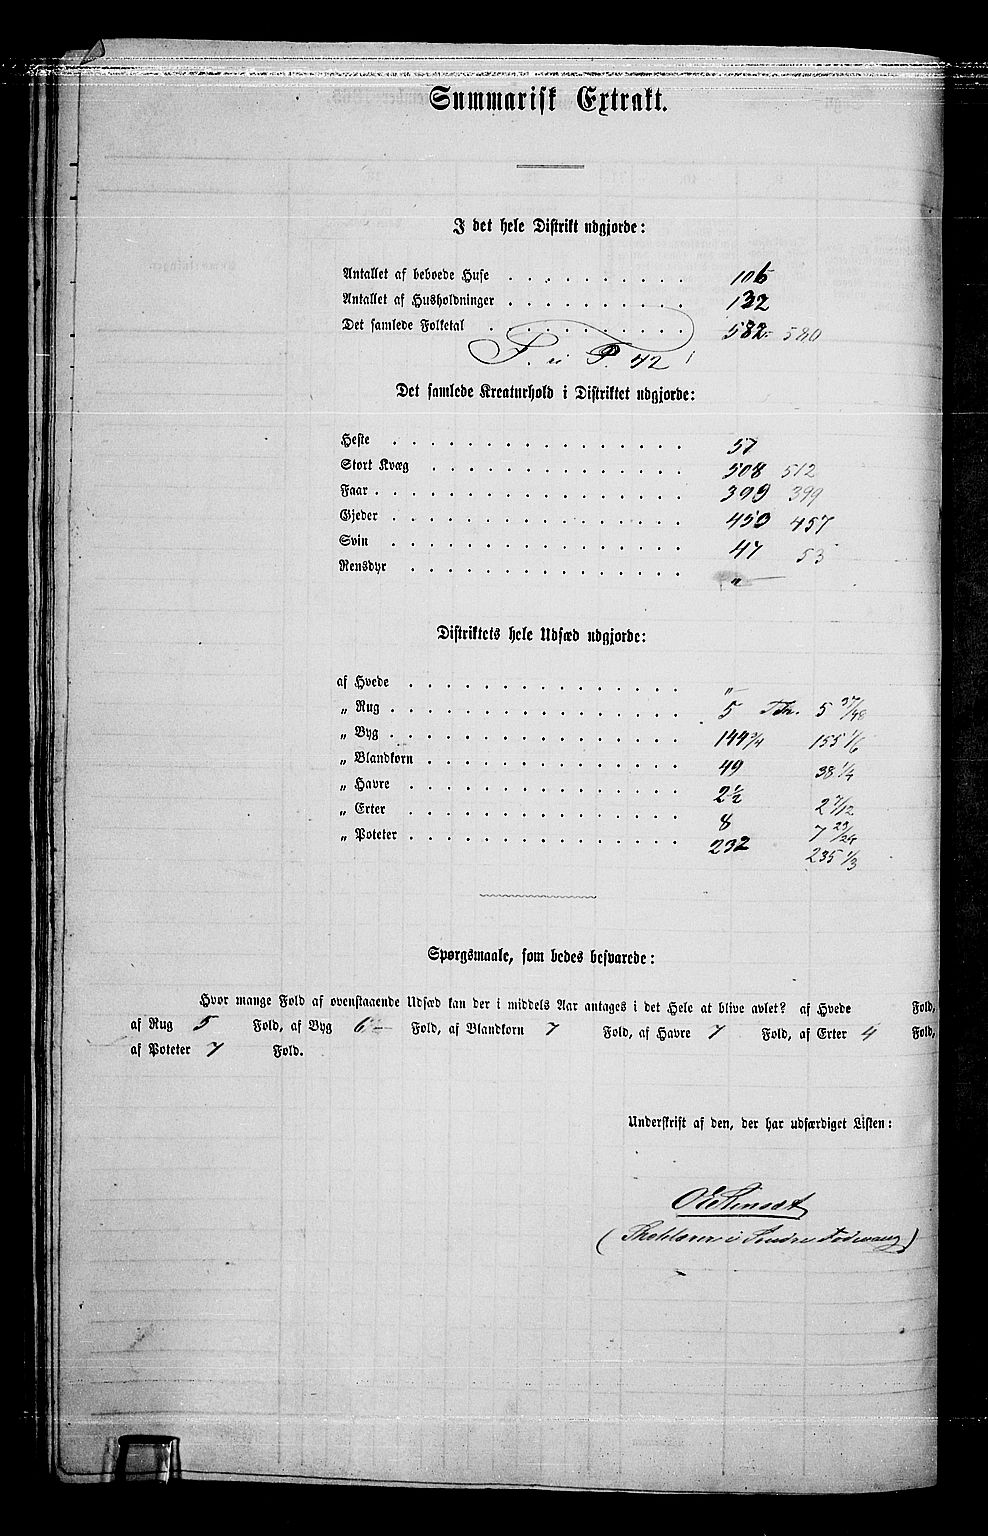 Summarisk Extrakt.
I det hele Distrikt udgjorde:
Antallet af beboede Huse . . . . . . . . . . 106
Antallet af Husholdninger . . . . . . . . . . 132
Det samlede Folketal . . . . . . . . . . 582 580
T. u P. 42
Det samlede Kreaturhold i Distriktet udgjorde:
Heste . . . . . . . . . . . . . . . . 57
Stort Kvæg . . . . . . . . . . . . . . 508 512
Faar . . . . . . . . . . . . . . . . . 399 399
Gjeder . . . . . . . . . . . . . . . . 450 457
Svin . . . . . . . . . . . . . . . . 47 53
Rensdyr . . . . . . . . . . . . . . . "
Distriktets hele Udsæd udgjorde:
af Hvede . . . . . . . . . . . . . . . "
„ Rug . . . . . . . . . . . . . . . . 5 Tdr. 5 37/48
„ Byg . . . . . . . . . . . . . . . . 144 3/4 155 1/6
„ Blandkorn . . . . . . . . . . . . . . 49 38 1/4
„ Havre . . . . . . . . . . . . . . . 2 1/2 2 7/12
„ Erter . . . . . . . . . . . . . . . 8 7 23/24
„ Poteter . . . . . . . . . . . . . . . 232 235 1/3
Spørgsmaale, som bedes besvarede:
Hvor mange Fold af ovenstaaende Udsæd kan der i middels Aar antages i det Hele at blive avlet? af Hvede Fold,
af Rug 5 Fold, af Byg 6 Fold, af Blandkorn 7 Fold, af Havre 7 Fold, af Erter 4 Fold,
af Poteter 7 Fold.
Underskrift af den, der har udfærdiget Listen:
( i Søndre )